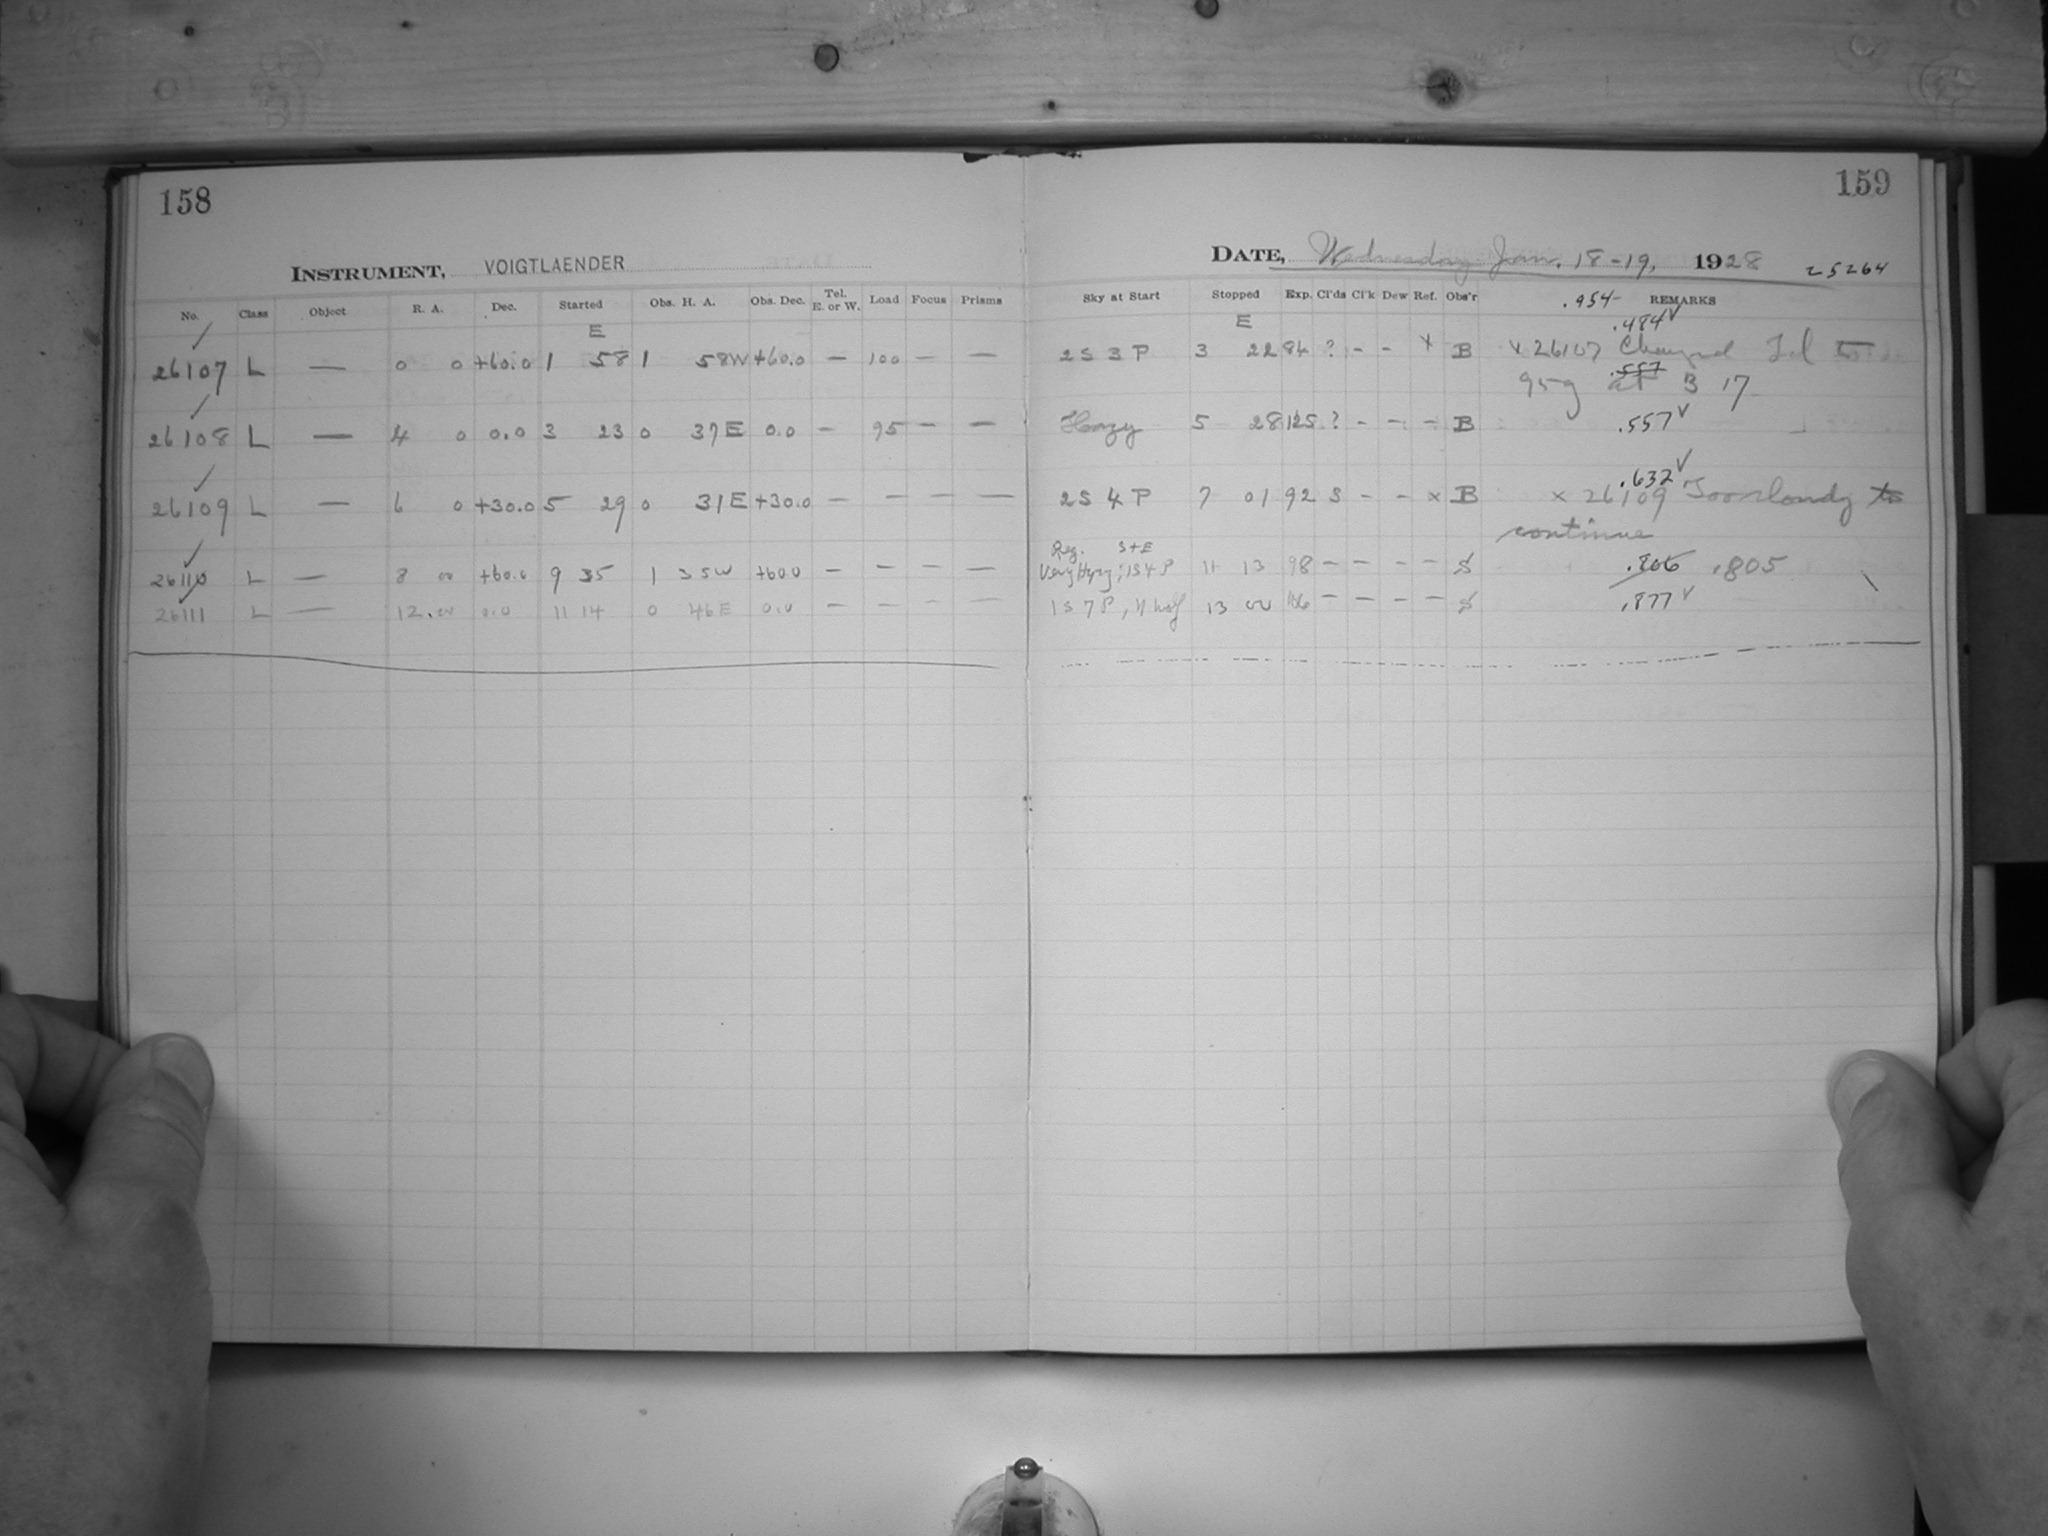 158
INSTRUMENT, VOIGTLAENDER
No. Class Object R. A. Dec. Started Obs. H. A. Obs. Dec. Tel. E. or W. Load Focus Prisms
E
26107 L — 0 0 +60.0 1 58 1 58W +60.0 — 100 — —
26108 L — 4 0 0.0 3 23 0 37E 0.0 — 95 — —
26109 L — 6 0 +30.0 5 29 0 31E +30.0 — — — —
26110 L — 8 00 +60.0 9 35 1 35W +60.0 — — — —
26111 L — 12.00 0.0 11 14 0 46E 0.0 — — — —
159
DATE, Wednesday Jan. 18-19, 1928 25264
Sky at Start Stopped Exp. Cl'ds Cl'k Dew Ref. Obs'r .954- REMARKS
E .484√
2S 3P 3 22 84 ? - - x B x 26107 Changed
.557
95g at 3 17
Hazy 5 28 125 ? - - - B .557√
.632√
2S 4P 7 01 92 S - - x B x 26109 Too cloudy to
continue
Reg. S+E
Very Hazy; 1S4P 11 13 98 - - - - S .806 .805
1S7P, 13 00 106 - - - - S .877√